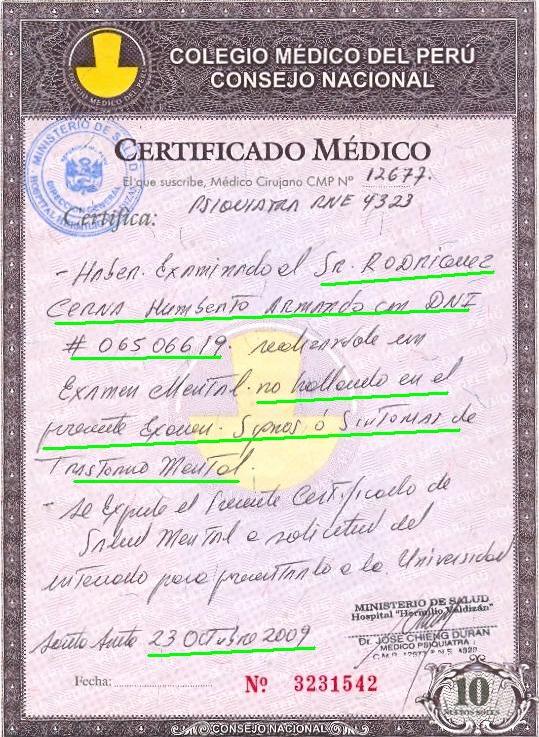 COLEGIO MÉDICO DEL PERÚ
CONSEJO NACIONAL
COLEGIO MÉDICO DEL PERÚ
MINISTERIO DE SALUD
CERTIFICADO MÉDICO
El que suscribe, Médico Cirujano CMP Nº 12677.
Certifica: PSIQUIATRA RNE 4323
- Haber. Examinado al Sr. RODRIGUEZ
CERNA Humberto ARMANDO con DNI
# 06506619. realizandole un
Examen Mental. no hallando en el
presente Examen. Signos ó Sintomas de
Trastorno Mental.
- Se Expide el Presente Certificado de
Salud Mental a solicitud del
interesado para presentarlo a la Universidad
MINISTERIO DE SALUD
Hospital "Hermilio Valdizán"
Santa Anita 23 Octubre 2009
Dr. JOSE CHIENG DURAN
MEDICO PSIQUIATRA
C.M.P. 12677 R.N.E. 4323
Fecha:
Nº 3231542
10
NUEVOS SOLES
CONSEJO NACIONAL